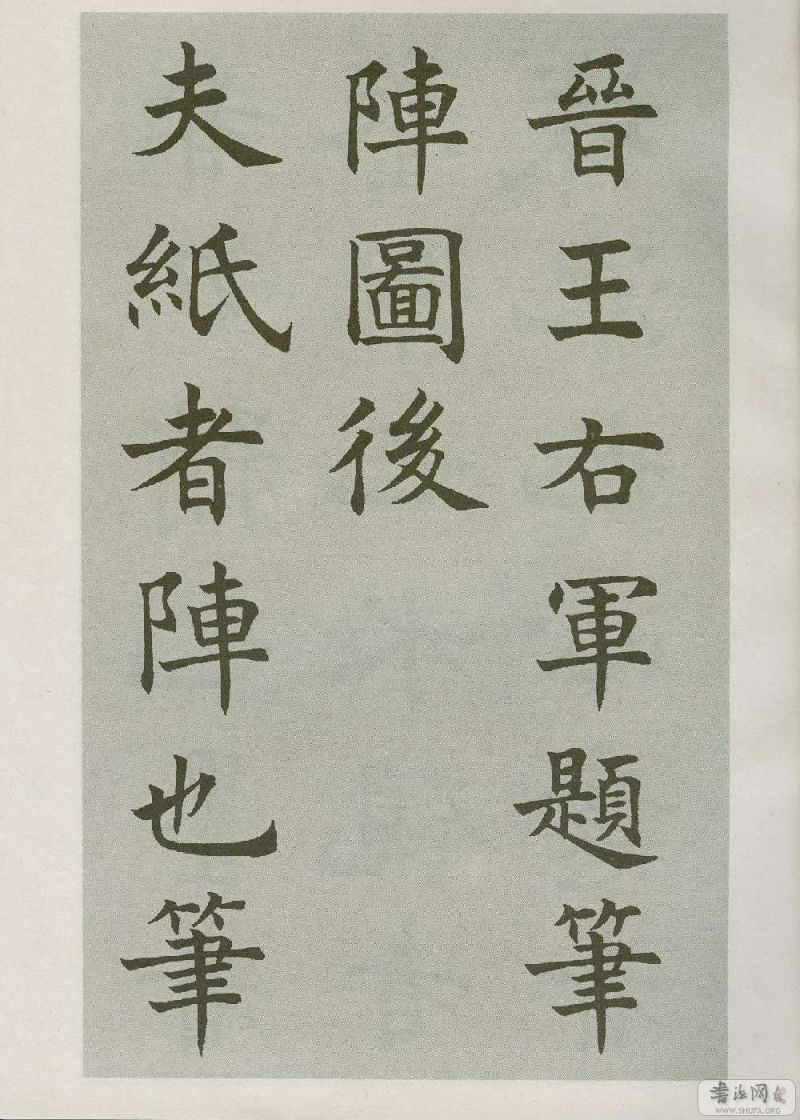 晉王右軍題筆
陣圖後
夫紙者陣也筆
書法网
WWW.SHUFA.ORG